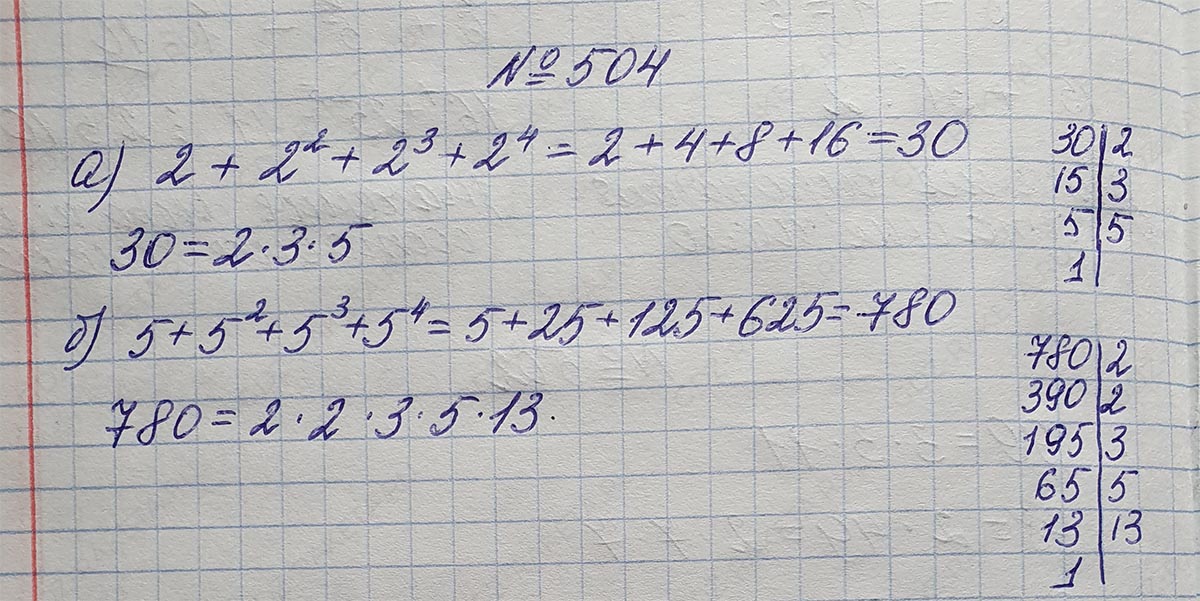 №504
а) 2 + 2² + 2³ + 2⁴ = 2 + 4 + 8 + 16 = 30
30 = 2 · 3 · 5
30|2
15|3
5|5
1|
б) 5 + 5² + 5³ + 5⁴ = 5 + 25 + 125 + 625 = 780
780 = 2 · 2 · 3 · 5 · 13.
780|2
390|2
195|3
65|5
13|13
1|